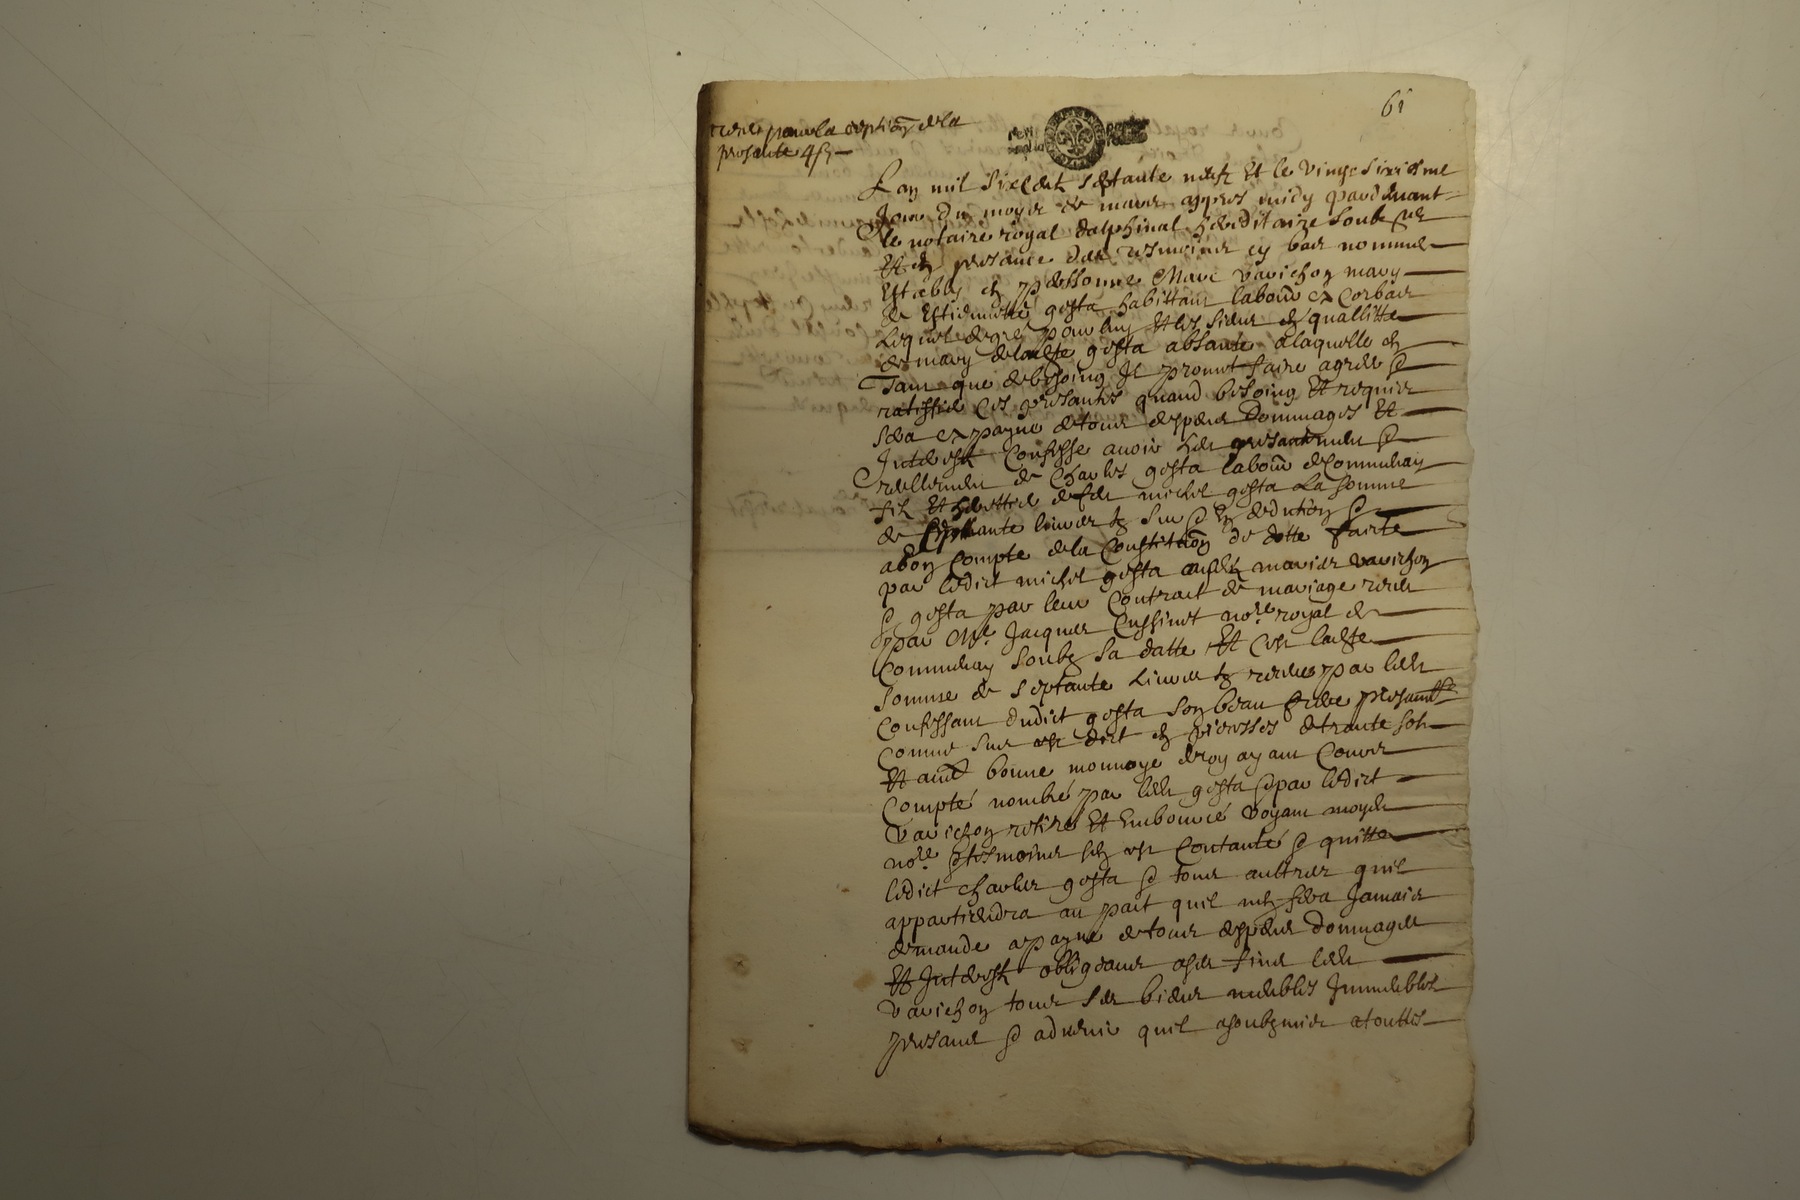 61
presante 4 s
Lan mil six cent septante neufz Et le vingt sixiesme
Jour du moys de mars appres midy pardevant
le notaire royal dalphinal hereditaire soubz
Et en presance des tesmoins cy bas nommes
Estably en personne Marc Varichon mary
de gosta habittant labour
Lequel de gre pour luy Et les siens en quallitte
de mary de gosta absante a laquelle en
Tant que de besoing Il promet faire agreer et
ratiffier ces presantes quand besoing Et requier
sera a payne de tous despens Dommages Et
Interestz Confesse avoir heu presantement et
reellement de Charles gosta labour de Communay
filz Et heritier de feu michel gosta La somme
de septante livres tz sur et en dedution et
a bon Compte de la Constitution de dotte faicte
par ledict michel gosta ausdictz maries varichon
et gosta par leur Contract de mariage receu
par Me Jacques Cussinet nore royal de
Communay soubz sa datte Et cest ladte
somme de septante Livres tz par led
Confessant dudict gosta son beau frere
Comme sus est dict en piesses de trante solz
Et autre bonne monnoye de roy ayant Cours
Compté nombré par led gosta et par ledict
Varichon retiré Et Emboursé voyant moyd
nore et tesmoins sen est Contanté et quitte
ledict charles gosta et tous aultres quil
appartiendra au pact quil nen fera Jamais
demande a payne de tous despens dommages
Et Interestz obligeant a ces fins led
Varichon tous ses biens meubles Immeubles
presans et advenir quil a soubzmis a touttes